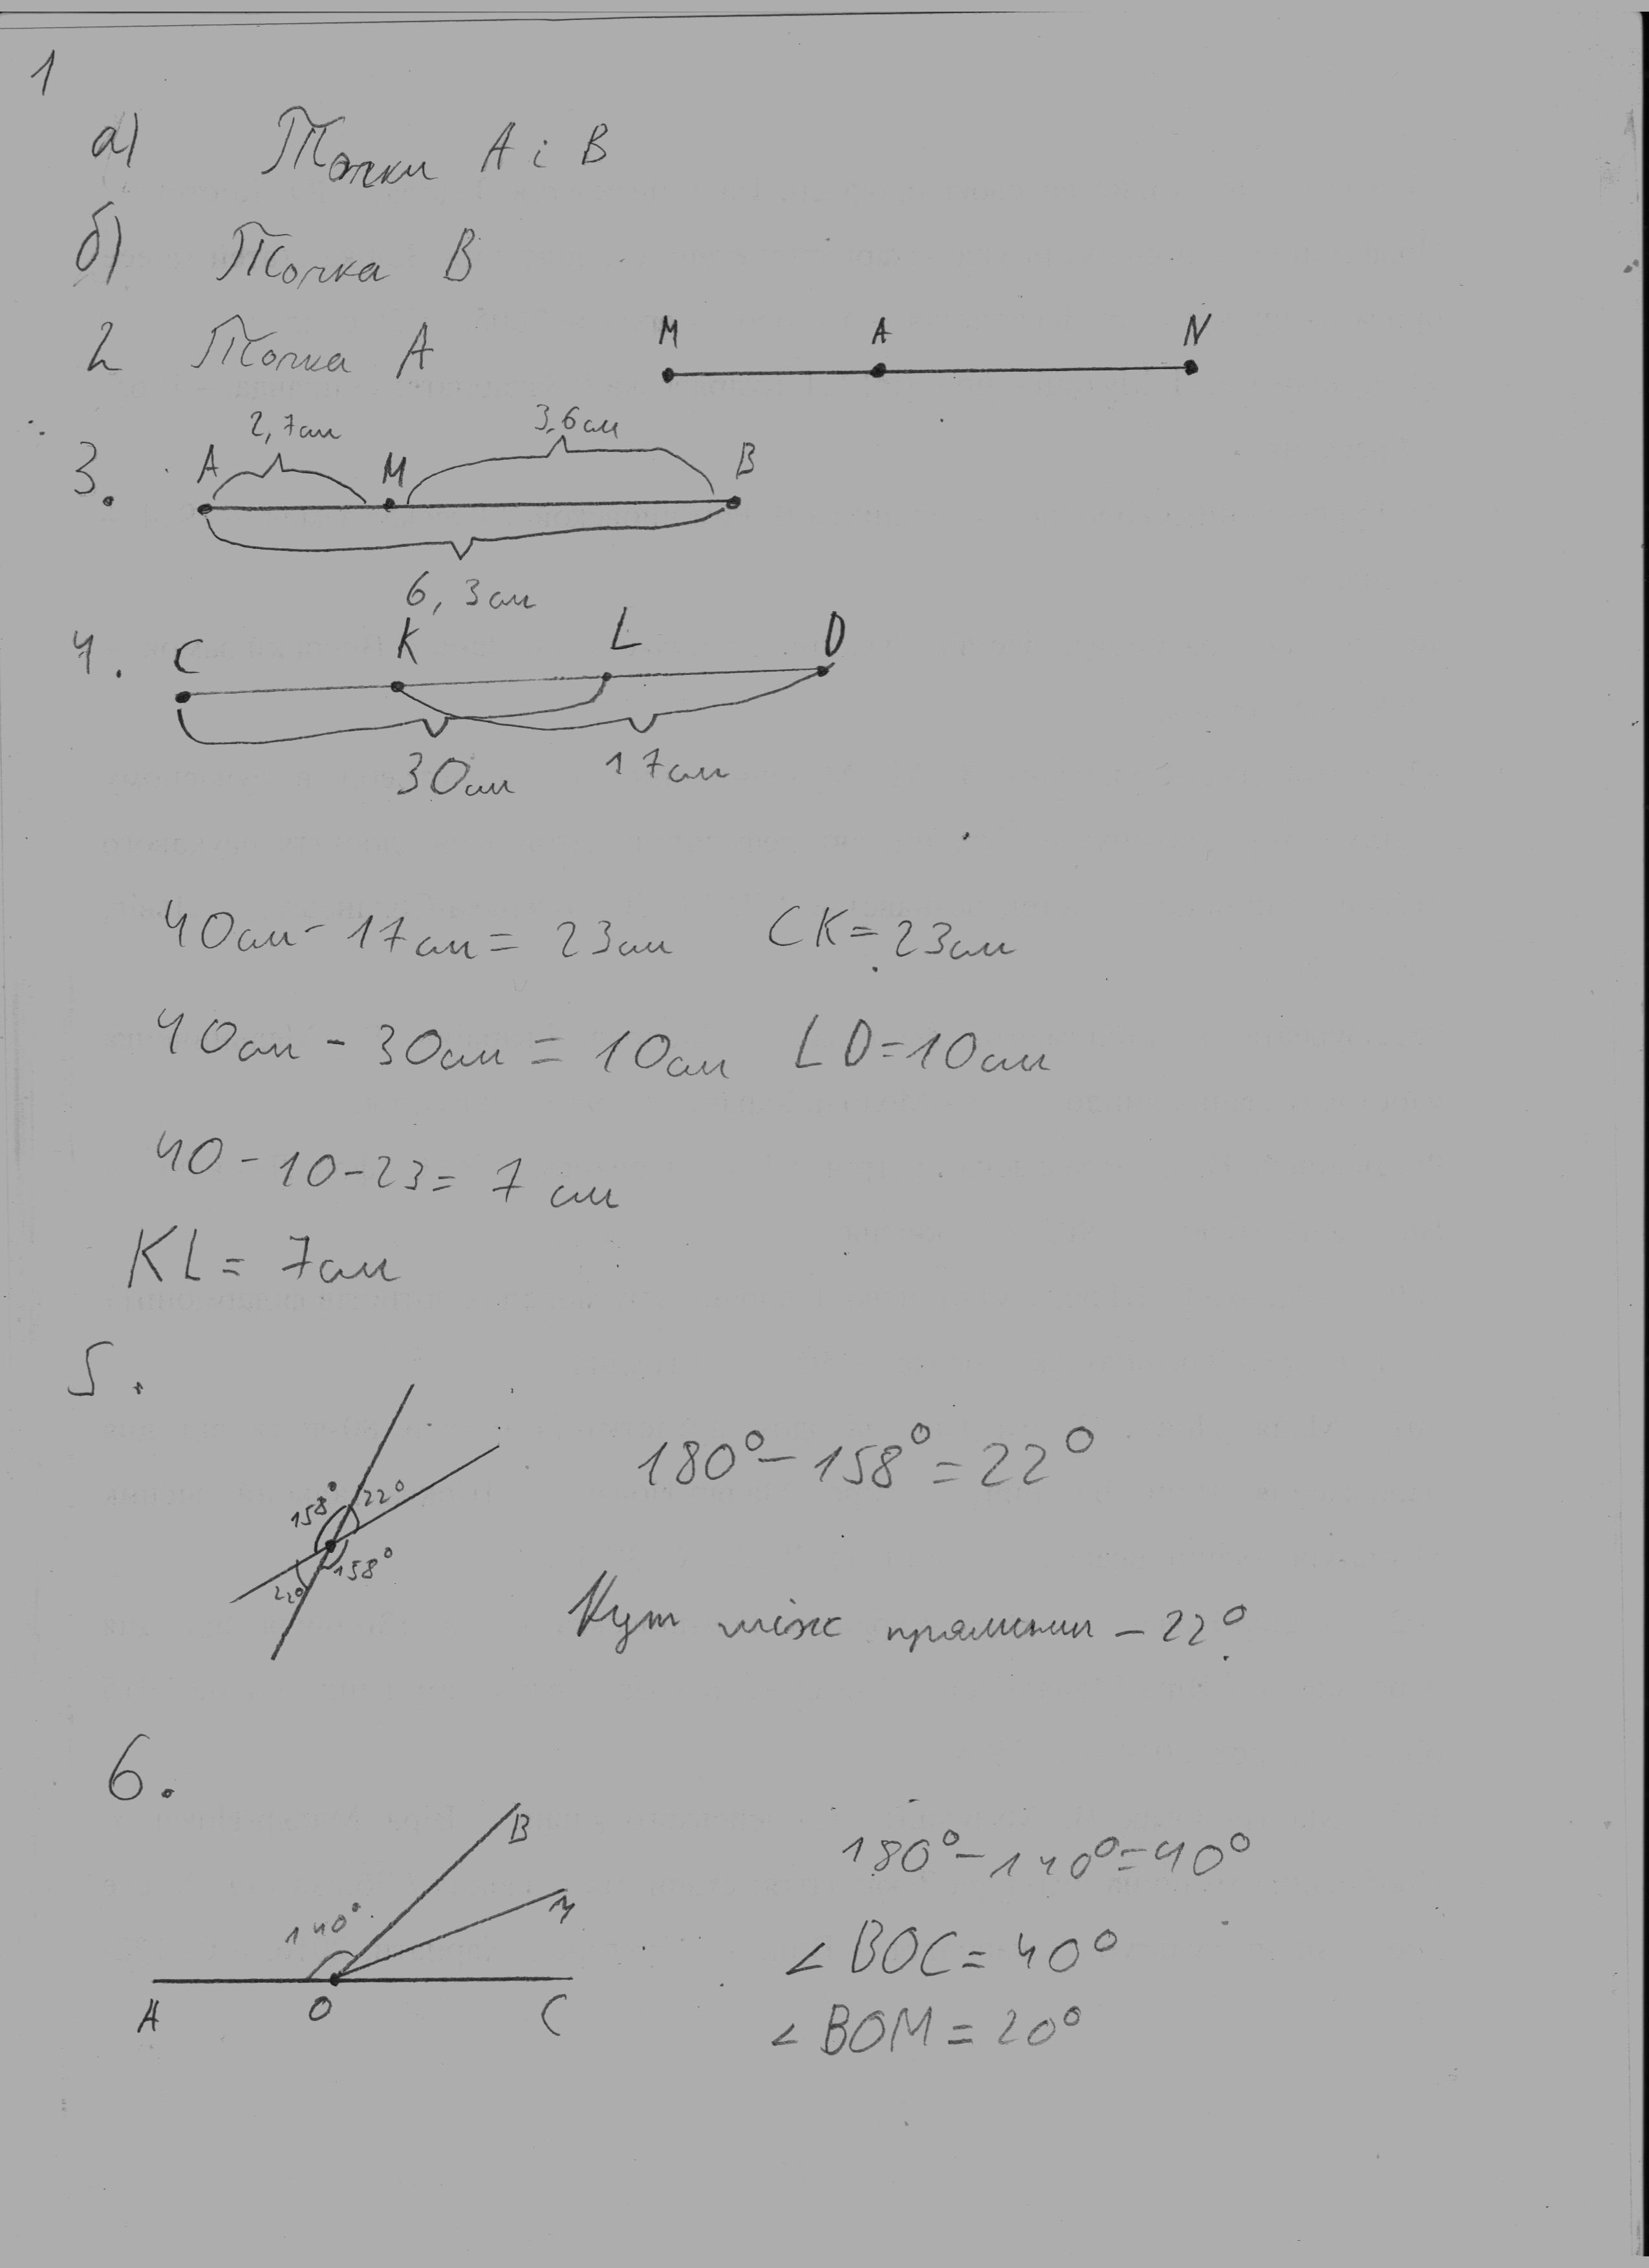 1
а) Точки А і В
б) Точка В
2 Точка А
M A N
3.
2,7см 3,6см
A M B
6,3см
4.
C K L D
30см 17см
40см - 17см = 23см CK = 23см
40см - 30см = 10см LD = 10см
40 - 10 - 23 = 7 см
KL = 7см
5.
158° 22°
22° 158°
180° - 158° = 22°
Кут між прямими - 22°.
6.
B
M
140°
A O C
180° - 140° = 40°
∠BOC = 40°
∠BOM = 20°